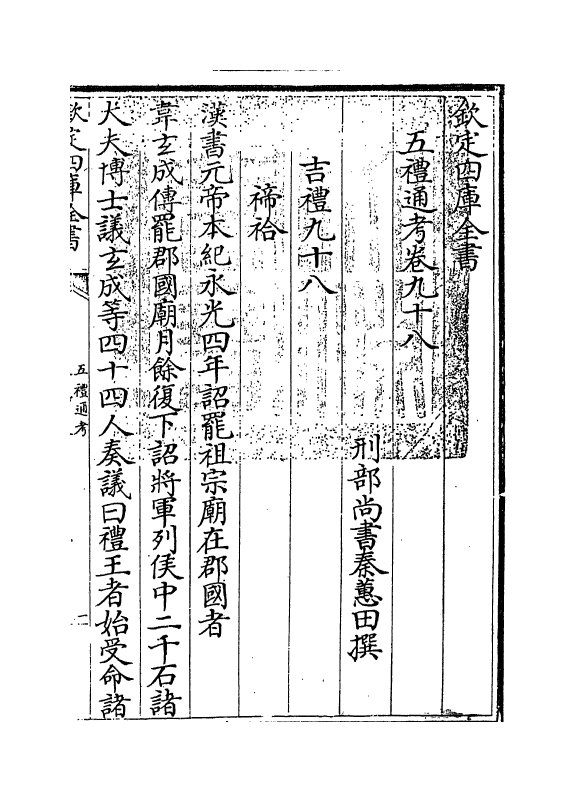 欽定四庫全書
五禮通考卷九十八
刑部尚書秦蕙田撰
吉禮九十八
禘祫
漢書元帝本紀永光四年詔罷祖宗廟在郡國者
韋玄成傳罷郡國廟月餘復下詔將軍列侯中二千石諸
大夫博士議玄成等四十四人奏議曰禮王者始受命諸
欽定四庫全書
五禮通考